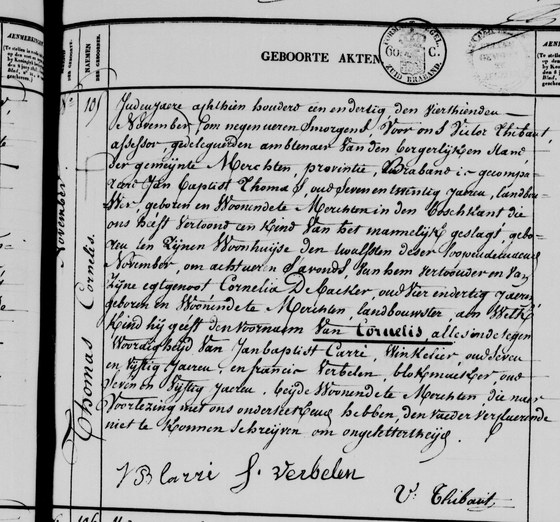 GEBOORTE AKTEN
FORM ZEGEL
60 C.
ZUID BRABAND.
NAMEN
N° 105
November
Thomas Cornelis.
In den jaere achthien honderd een en dertig, den vierthienden
November, om negen ueren smorgens, voor ons Victor Thibaut,
assessor, gedelegueerden ambtenaer van den borgerlijken stand,
der gemeijnte Merchten, provintie, Braband is gecompa
reerd Jan Baptist Thomas, oud seven en twentig jaeren, landbou
wer, geboren en woonende te Merchten in den Boschkant die
ons heeft vertoond een kind van het mannelijk geslagt, gebo
ren ten zijnen woonhuijse den twalfsten deser loopende maend
November, om acht ueren s'avonds, van hem verthoonder en van
zijne egtgenoot Cornelia De Backer, oud vier en dertig jaeren,
geboren en woonende te Merchten, landbouwster, aen welk
kind hij geeft den voornaem van Cornelis, alles in de tegen
woordigheijd van Jan baptist Carri, winkelier, oud seven
en vijftig jaeren, en francis Verbelen, blokmaeker, oud
seven en vijftig jaeren, beijde woonende te Merchten, die naer
voorlezing met ons onderteekend hebben, den vaeder verclaerende
niet te konnen schrijven om ongeletterdheijd.
J B Carri f. Verbelen
V. Thibaut